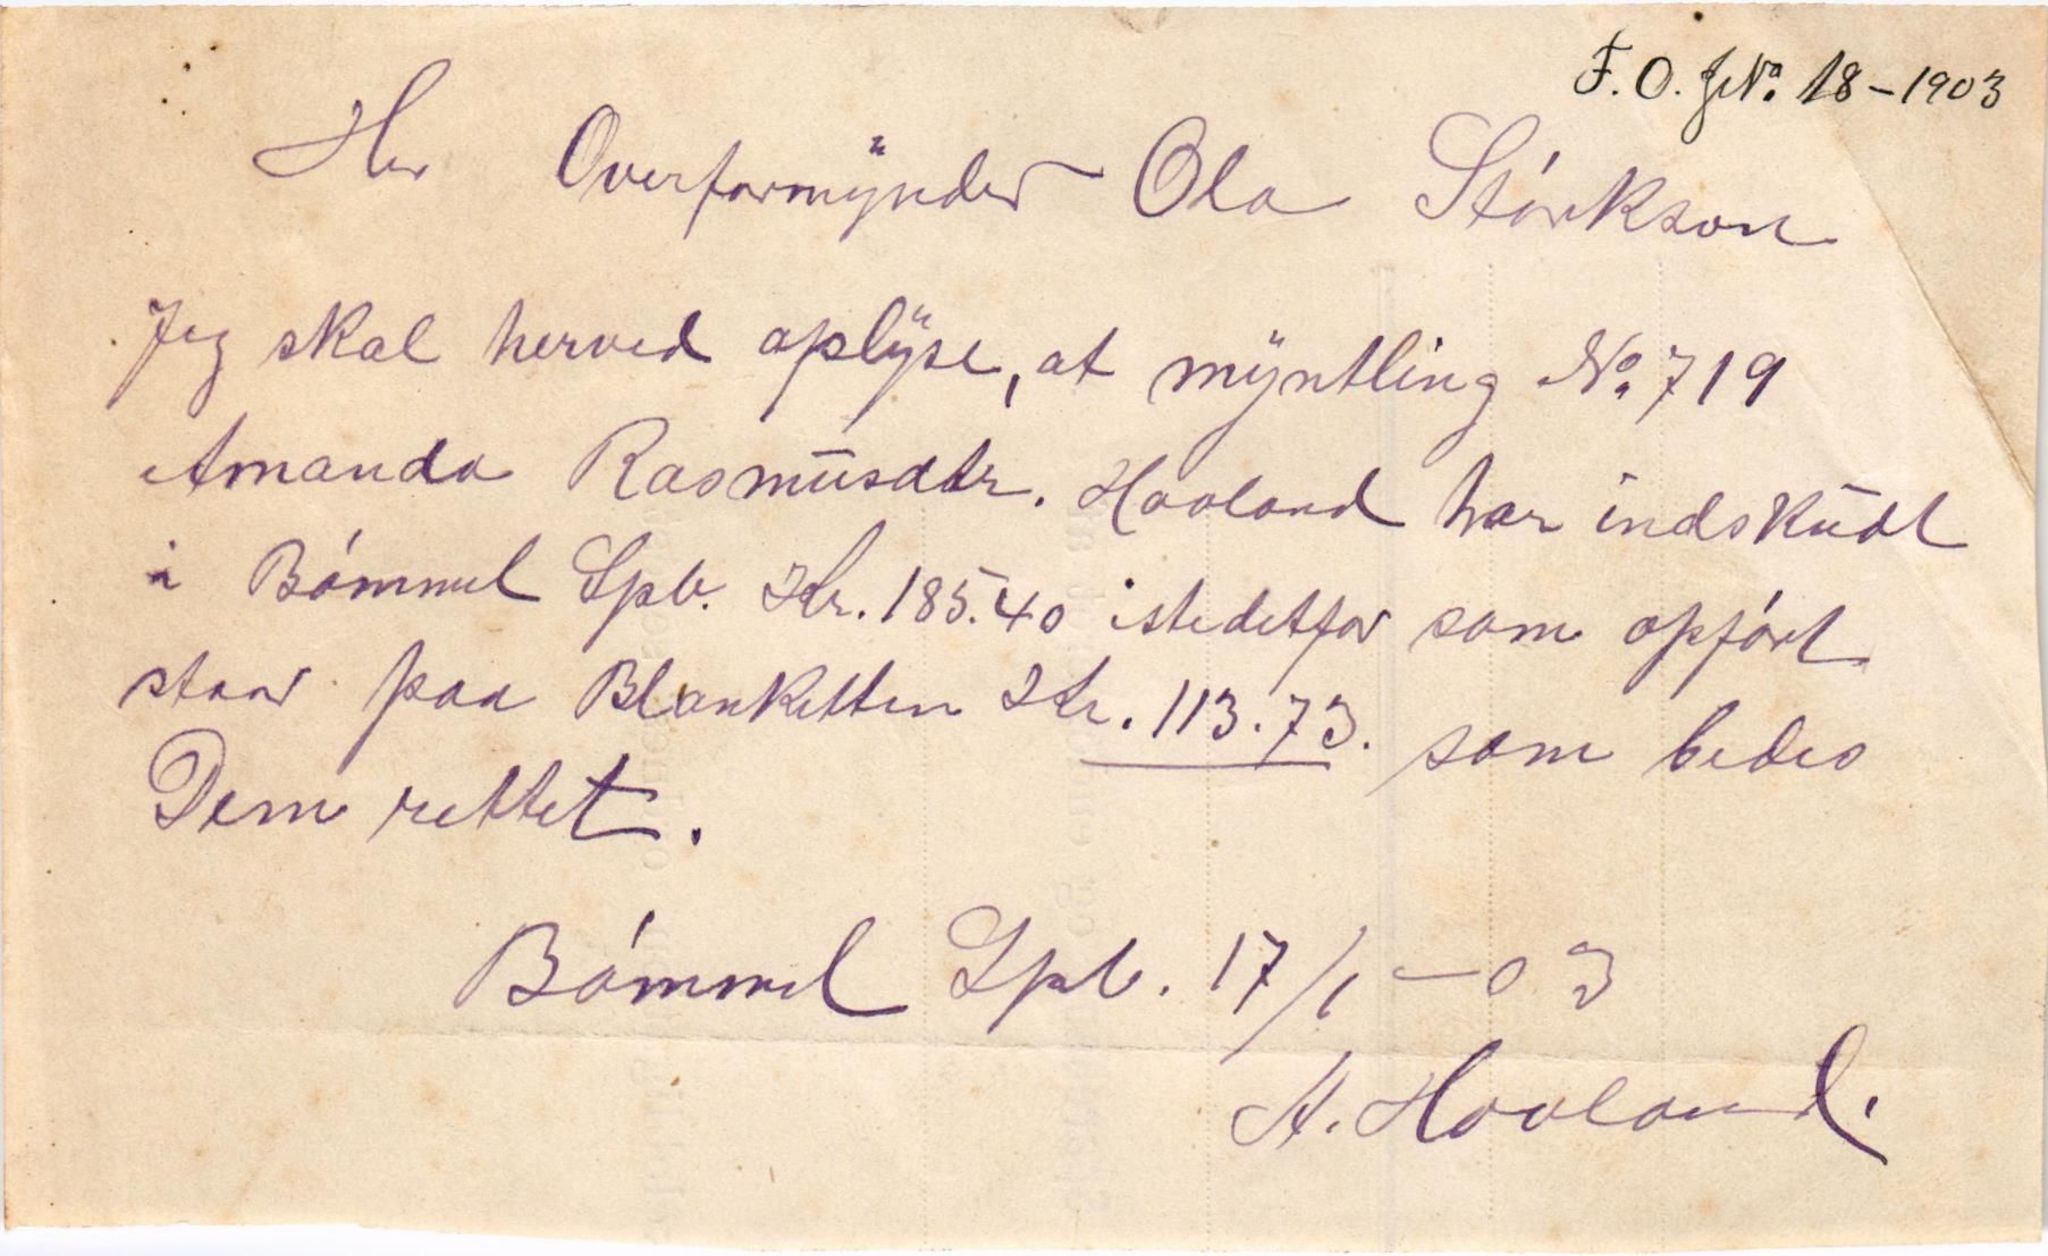 F. O. JNo. 18-1903
Her Overformÿnder Ola Störkson
Jeg skal herved oplÿse, at mÿntling No. 719
Amanda Rasmusdtr. Haaland har indskudt
i Bömmel Spb. Kr. 185.40 istedetfor som opført
staar paa Blanketten Kr. 113.73. som bedes
Dem rettet.
Bömmel Spb. 17/1-03
A. Haaland.